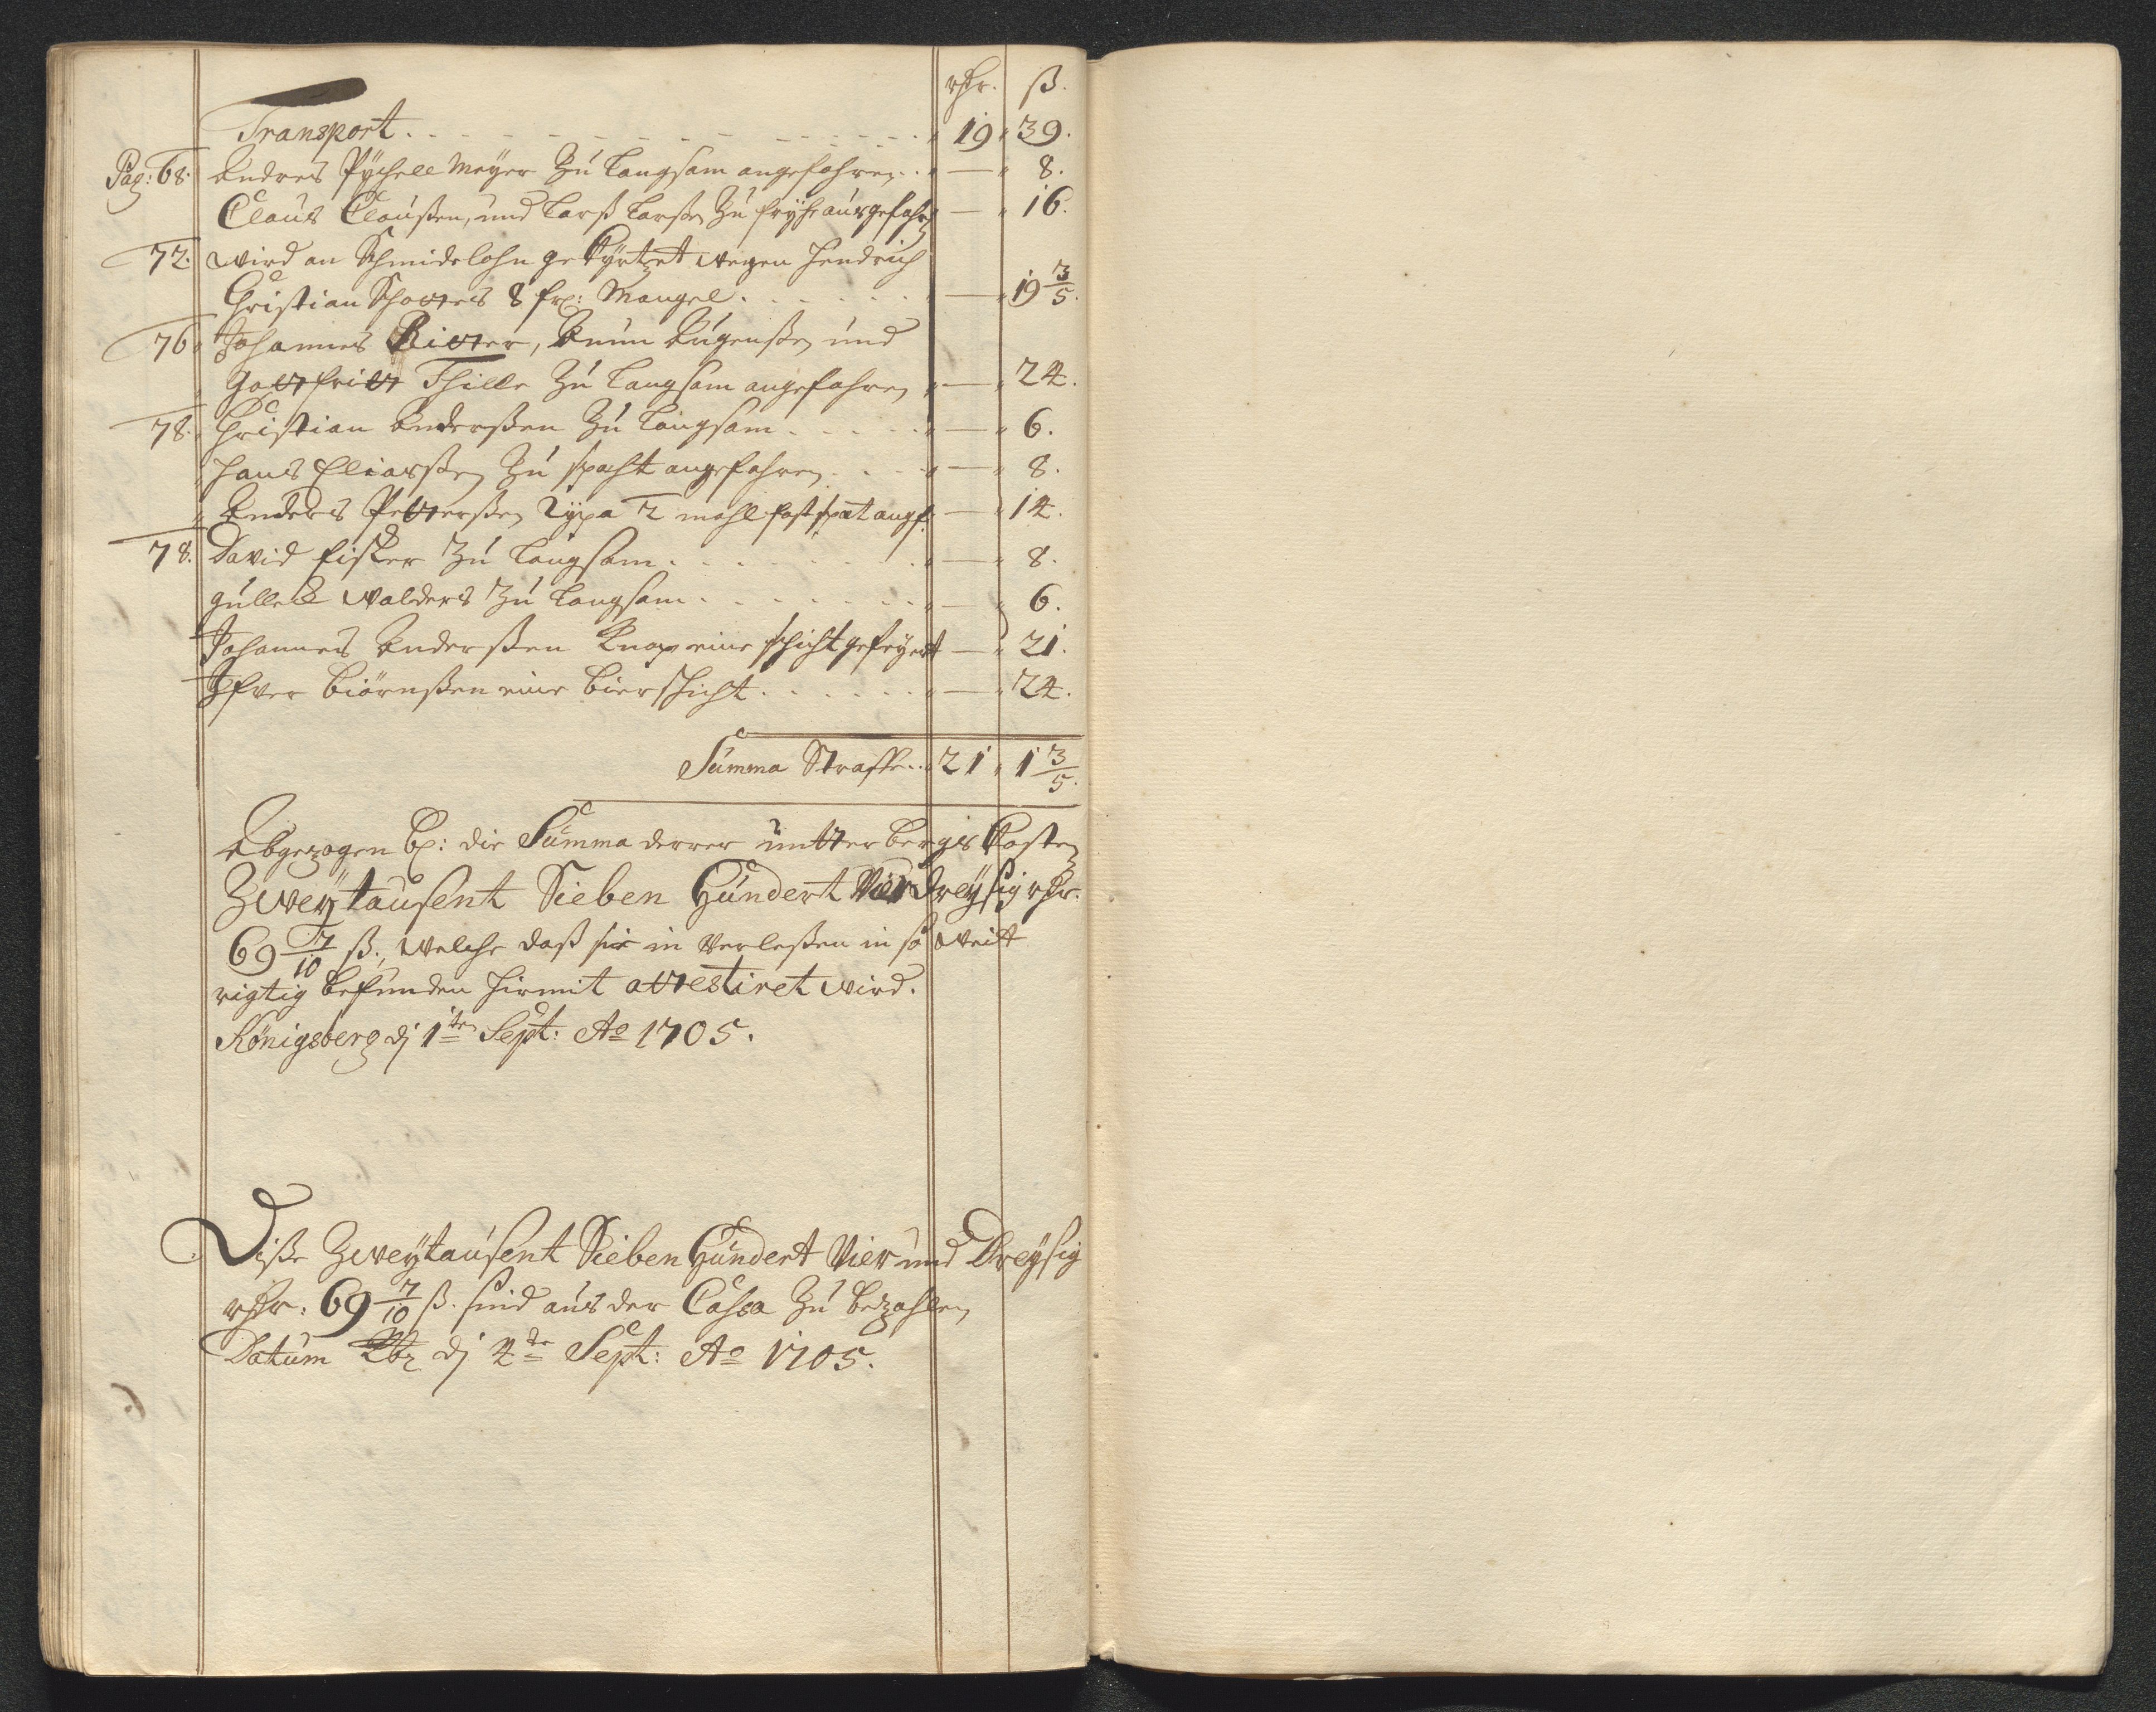 rthr. ß.
Transport . . . . . . 19 39.
Pag: 68. Andres Pÿchell Meÿer Zu Langsam angefahren . . — 8.
Claus Claußen, und Larß Larßen Zu frÿhe ausgefahren — 16.
72. wird an Schmidelohn gekÿrtzet wegen Hendrich
Christian Schottes 8 Mangel . . . . — 19 3/5.
76. Johannes Ritter, Knun Augenßen und
Gottfritt Thille Zu Langsam angefahren — 24.
78. Christian Anderßen Zu Langsam . . . . — 6.
Hans Eliasßen Zu spaht angefahren . . . — 8.
Anders Petterßen Rÿpa 2 mahl fast spat angf: — 14.
78. David Fisker Zu Langsam . . . . — 8.
Gulleck Walders Zu Langsam . . . . — 6.
Johannes Anderßen Knap eine schicht gefeÿert — 21.
Ifver Biörnßen eine Bierschicht . . . . — 24.
Summa Straffe . . 21 1 3/5.
Abgezogen die Summa derer unter bergis Kosten
Zweÿtausent Sieben Hundert Vier dreÿsig rthr.
69 7/10 ß., welche daß sie in Verleßen in so weitt
rigtig befunden hirmit attestiret wird.
Königsberg dj 1ten Sept: Ao 1705.
Diße Zweÿtausent Sieben Hundert Vier und Dreÿsig
rthr: 69 7/10 ß. sind aus der Cassa Zu bezahlen
Datum Kbg dj 4te Sept: Ao 1705.